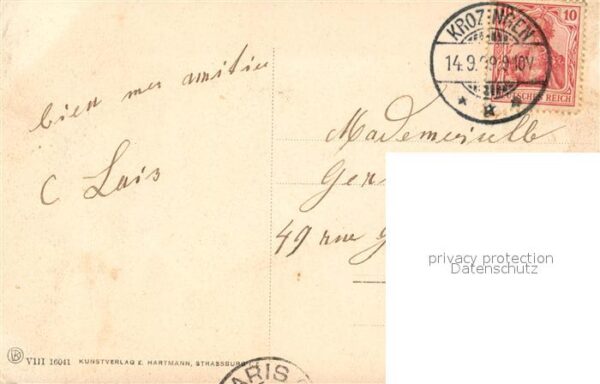 bien mes amitiés
C Lais
KROZINGEN
14.9.09.9-10V
10
DEUTSCHES REICH
Mademoiselle
Gen
49 rue
privacy protection
Datenschutz
VIII 16041 KUNSTVERLAG E. HARTMANN, STRASSBURG
PARIS